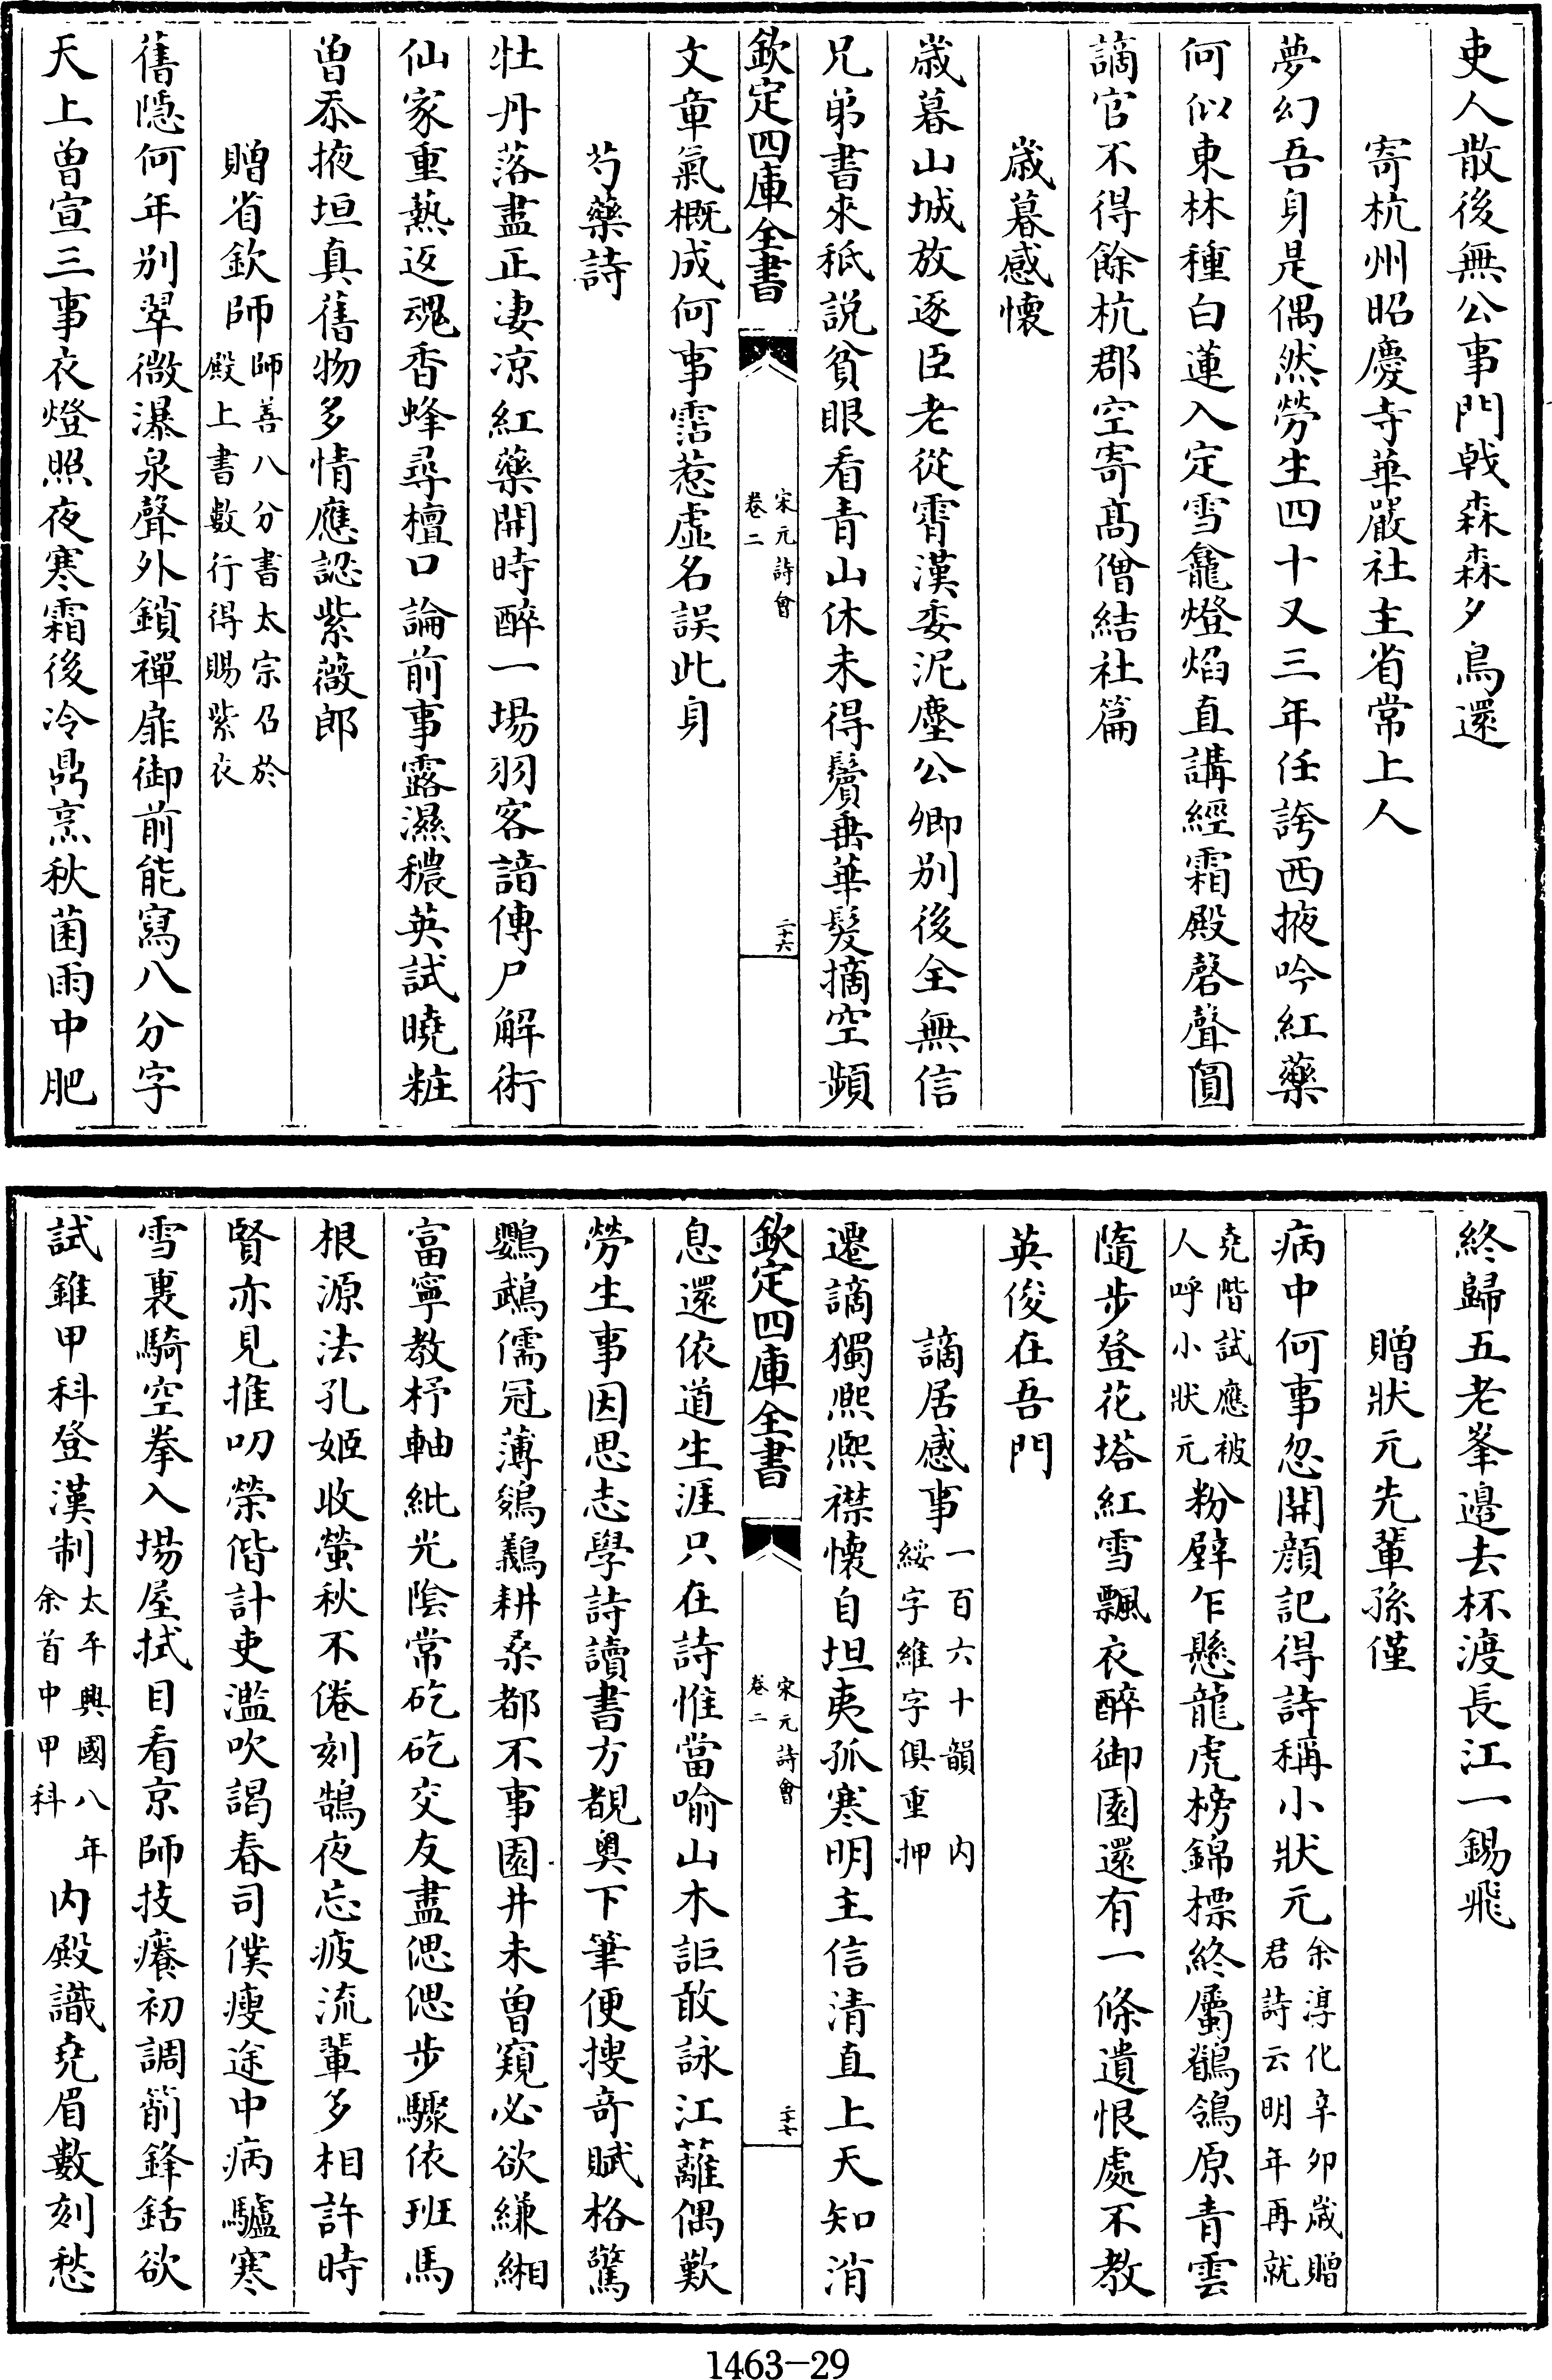 吏人散後無公事門戟森森夕鳥還
寄杭州昭慶寺華嚴社主省常上人
夢幻吾身是偶然勞生四十又三年任誇西掖吟紅藥
何似東林種白蓮入定雪龕燈焰直講經霜殿磬聲圓
謫官不得餘杭郡空寄髙僧結社篇
歳暮感懷
歳暮山城放逐臣老從霄漢委泥塵公卿别後全無信
兄弟書來秪説貧眼看青山休未得鬢垂華髮摘空頻
欽定四庫全書
宋元詩㑹
卷二
二十六
文章氣概成何事霑惹虚名誤此身
芍藥詩
牡丹落盡正凄凉紅藥開時醉一場羽客諳傳尸解術
仙家重熱返魂香蜂尋檀口論前事露濕穠英試曉粧
曽忝掖垣真舊物多情應認紫薇郎
贈省欽師師善八分書太宗召於
殿上書數行得賜紫衣
舊隠何年别翠微瀑泉聲外鎖禪扉御前能寫八分字
天上曽宣三事衣燈照夜寒霜後冷鼎烹秋菌雨中肥
終歸五老峯邉去杯渡長江一錫飛
贈狀元先輩孫僅
病中何事忽開顔記得詩稱小狀元余淳化辛卯歳贈
君詩云明年再就
堯階試應被
人呼小狀元粉壁乍懸龍虎榜錦標終屬鶺鴒原青雲
隨步登花塔紅雪飄衣醉御園還有一條遺恨處不教
英俊在吾門
謫居感事一百六十韻内
綏字維字俱重押
遷謫獨熙熙襟懷自坦夷孤寒明主信清直上天知消
欽定四庫全書
宋元詩㑹
卷二
二十七
息還依道生涯只在詩惟當喻山木詎敢詠江蘺偶歎
勞生事因思志學詩讀書方覩奥下筆便搜奇賦格驚
鸚鵡儒冠薄鵕鸃耕桑都不事園井未曽窺必欲縑緗
富寧教杼軸紕光陰常矻矻交友盡偲偲步驟依班馬
根源法孔姬收螢秋不倦刻鵠夜忘疲流輩多相許時
賢亦見推叨榮偕計吏濫吹謁春司僕瘦途中病驢寒
雪裏騎空拳入場屋拭目看京師技癢初調箭鋒銛欲
試錐甲科登漢制太平興國八年
余首中甲科内殿識堯眉數刻愁
1463-29